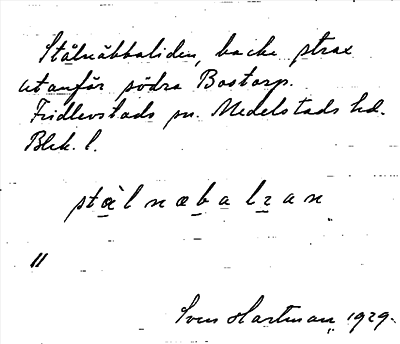 Stålnäbbaliden, backe strax
utanför södra Bostorp.
Fridlevstads sn. Medelstads hd.
Blek. l.
stålnæbalɪan
"
Sven Hartman, 1929.